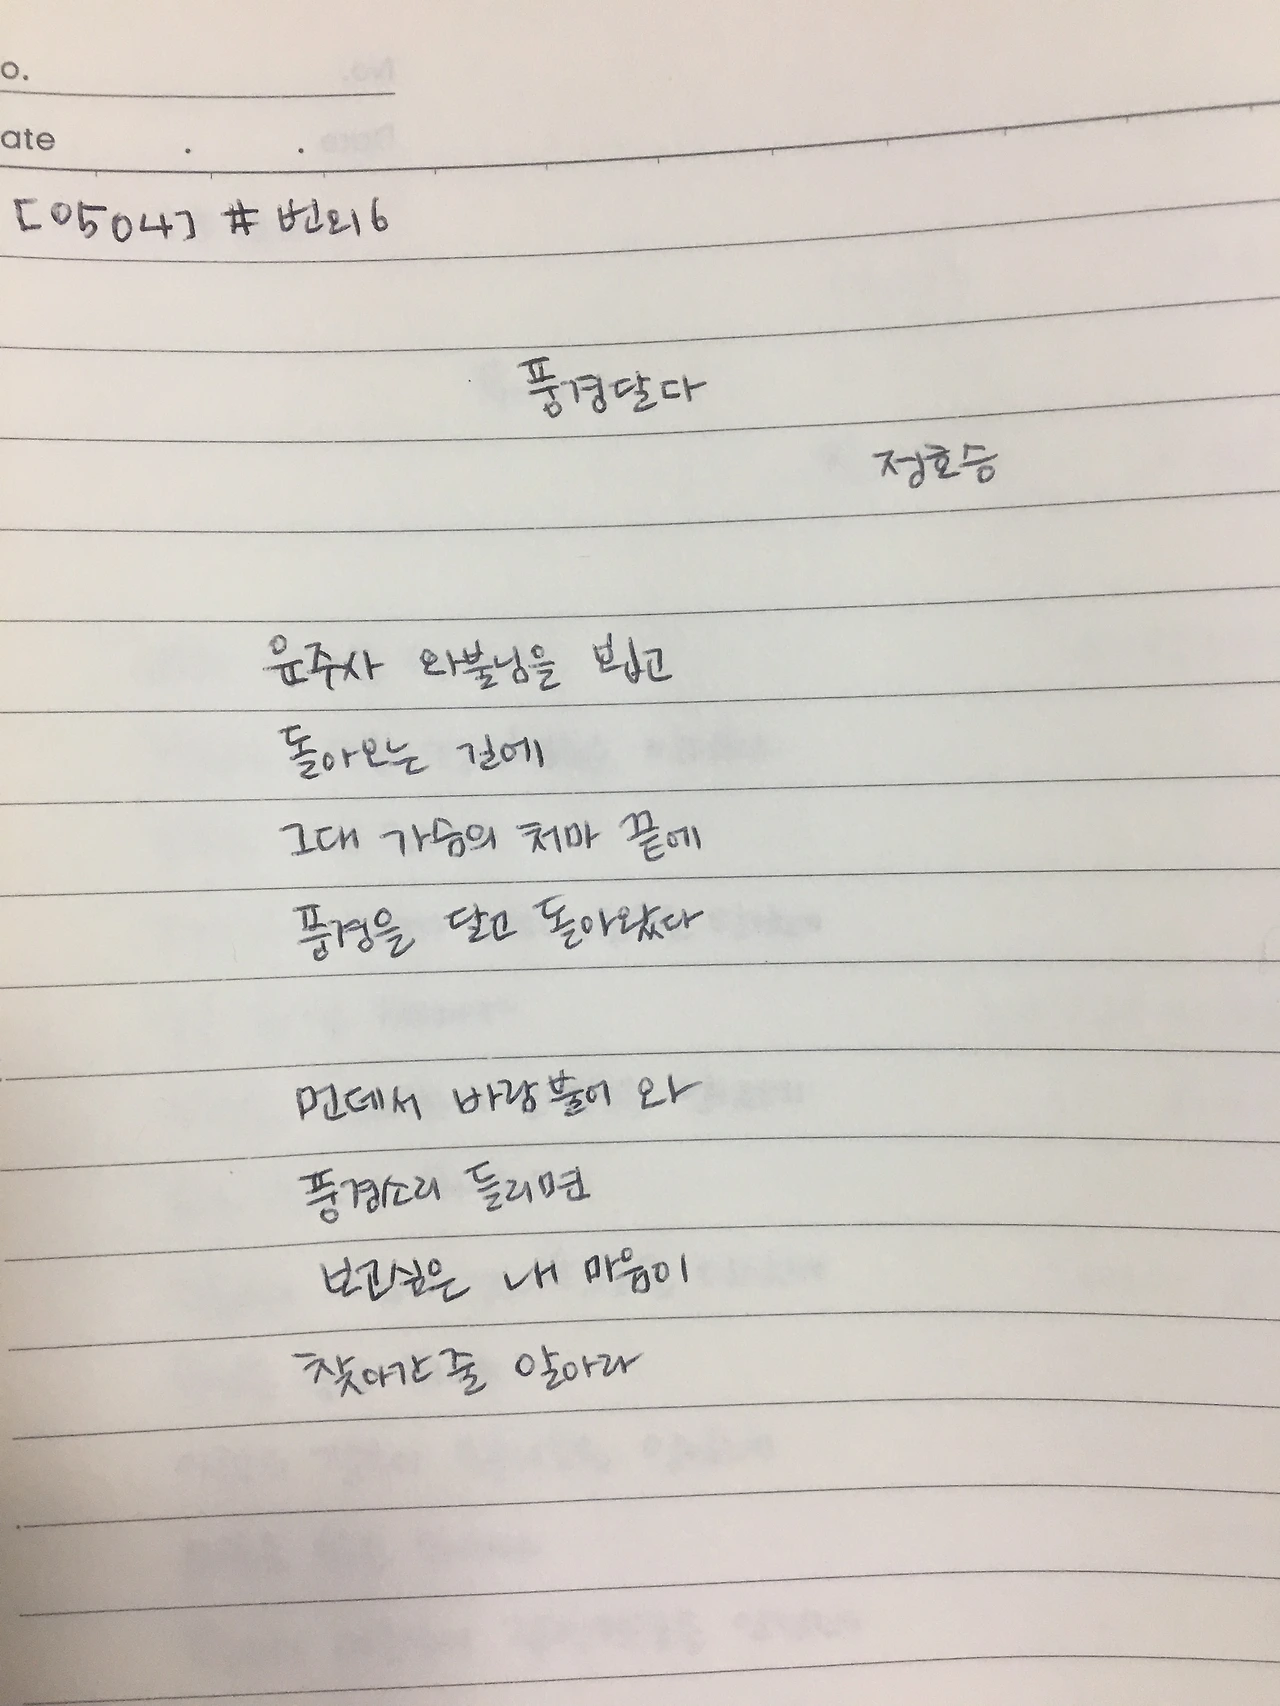 o.
ate . .
[0504] # 번외6
풍경달다
정호승
윤주사 와불님을 뵙고
돌아오는 길에
그대 가슴의 처마 끝에
풍경을 달고 돌아왔다
먼데서 바람불어 와
풍경소리 들리면
보고싶은 내 마음이
찾아간 줄 알아라